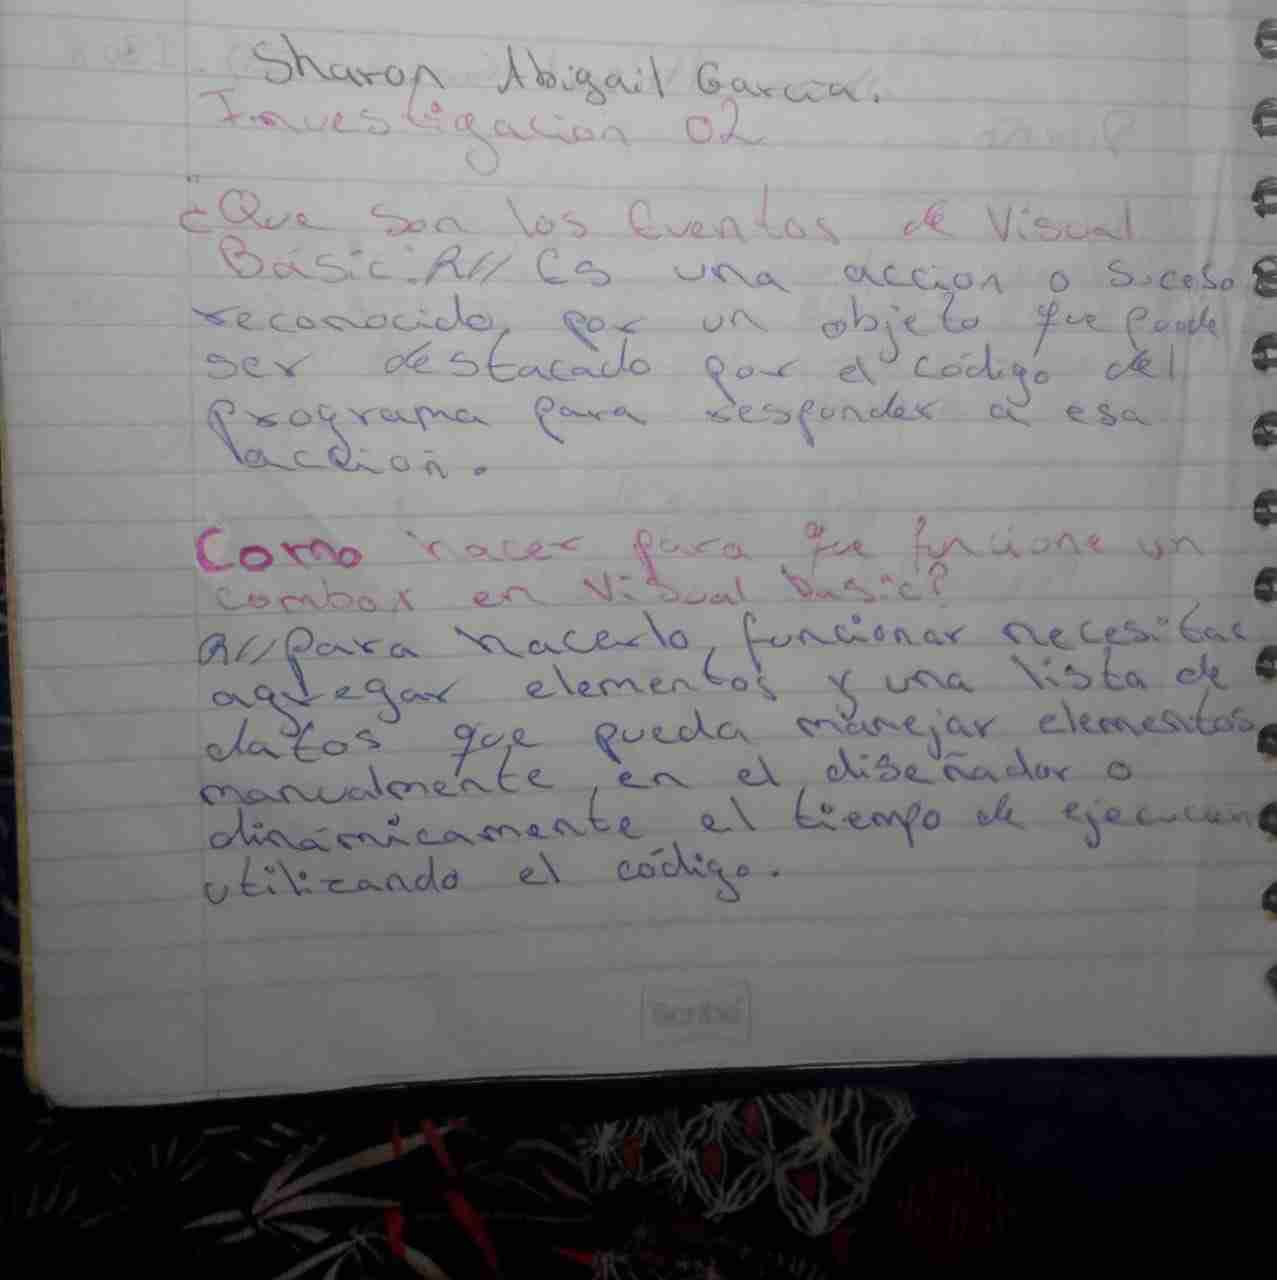 Sharon Abigail Garcia.
Investigacion 02
¿Que son los Eventos de Visual
Basic: R// Es una accion o suceso
reconocido, por un objeto que puede
ser destacado por el código del
programa para responder a esa
accion.
Como hacer para que funcione un
combox en Visual basic?
R// para hacerlo, funcionar necesitas
agregar elementos y una lista de
datos que pueda manejar elementos
manualmente, en el diseñador o
dinámicamente el tiempo de ejecucion
utilizando el código.
Scribe